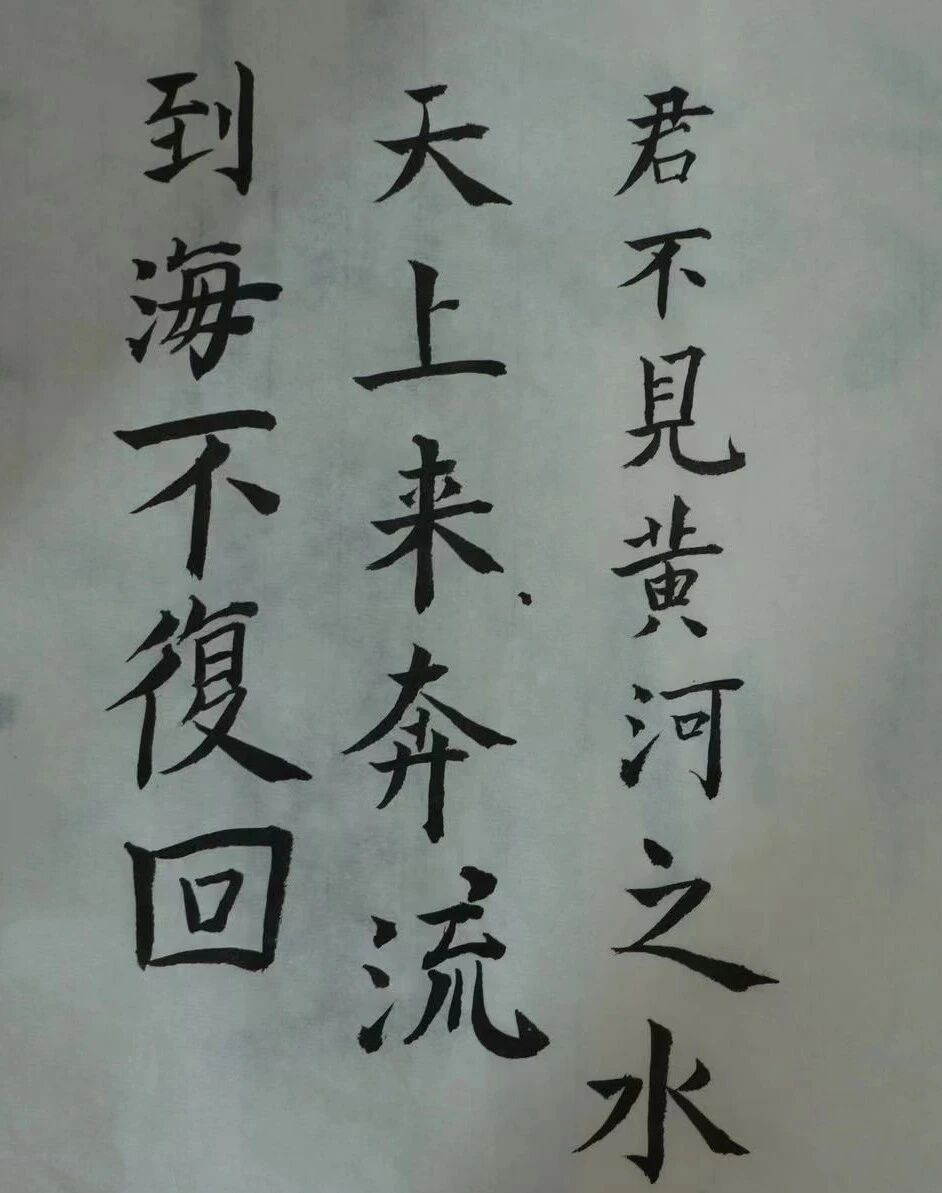 君不見黄河之水
天上来奔流
到海不復回